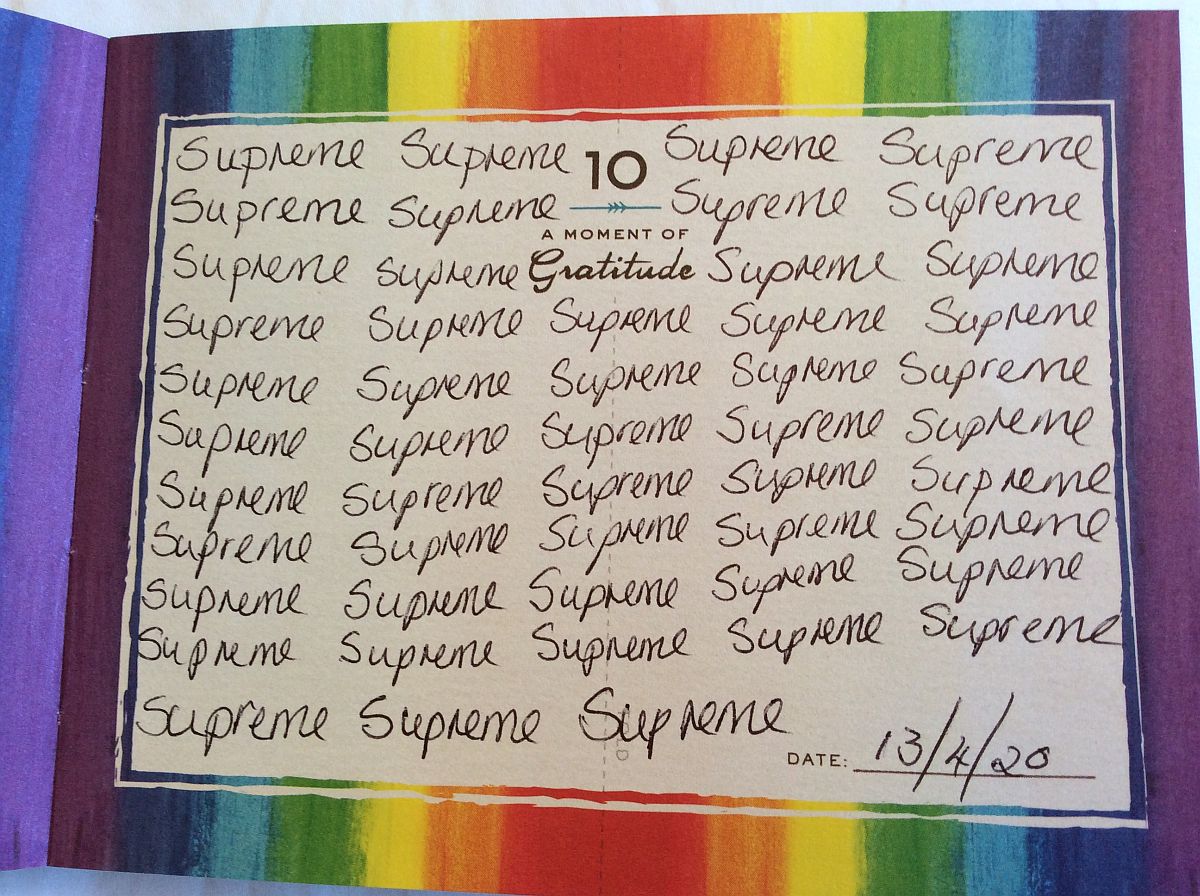 Supreme Supreme 10 Supreme Supreme
Supreme Supreme Supreme Supreme
A MOMENT OF
Supreme Supreme Gratitude Supreme Supreme
Supreme Supreme Supreme Supreme Supreme
Supreme Supreme Supreme Supreme Supreme
Supreme Supreme Supreme Supreme Supreme
Supreme Supreme Supreme Supreme Supreme
Supreme Supreme Supreme Supreme Supreme
Supreme Supreme Supreme Supreme Supreme
Supreme Supreme Supreme Supreme Supreme
Supreme Supreme Supreme
DATE: 13/4/20